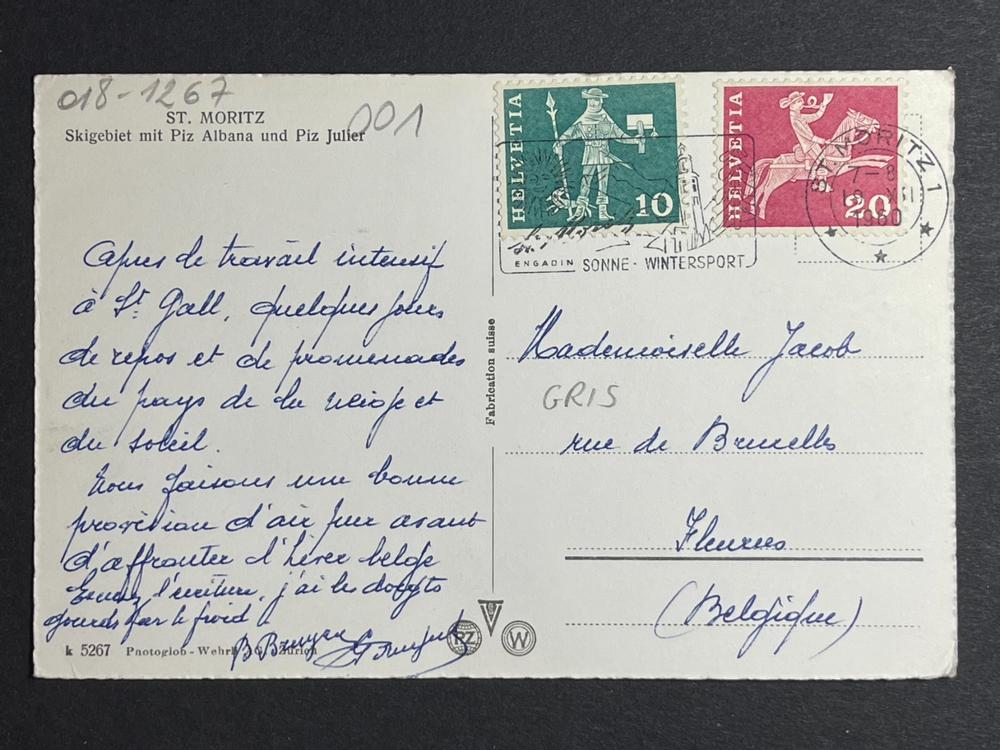 018-1267
ST. MORITZ
001
Skigebiet mit Piz Albana und Piz Julier
HELVETIA
10
HELVETIA
20
ST. MORITZ 1
7-8
XII
1960
ENGADIN SONNE - WINTERSPORT
Apres de travail intensif
à St. Gall, quelques jours
de repos et de promenades
du pays de la neige et
du soleil.
Nous faisons une bonne
provision d'air pur avant
d'affronter l'hiver belge
l'écriture, j'ai les doigts
gourds par le froid
Fabrication suisse
Mademoiselle Jacob
GRIS
rue de Bruxelles
Fleurus
(Belgique)
PZ
W
k 5267 Photoglob-Wehrli AG. Zürich